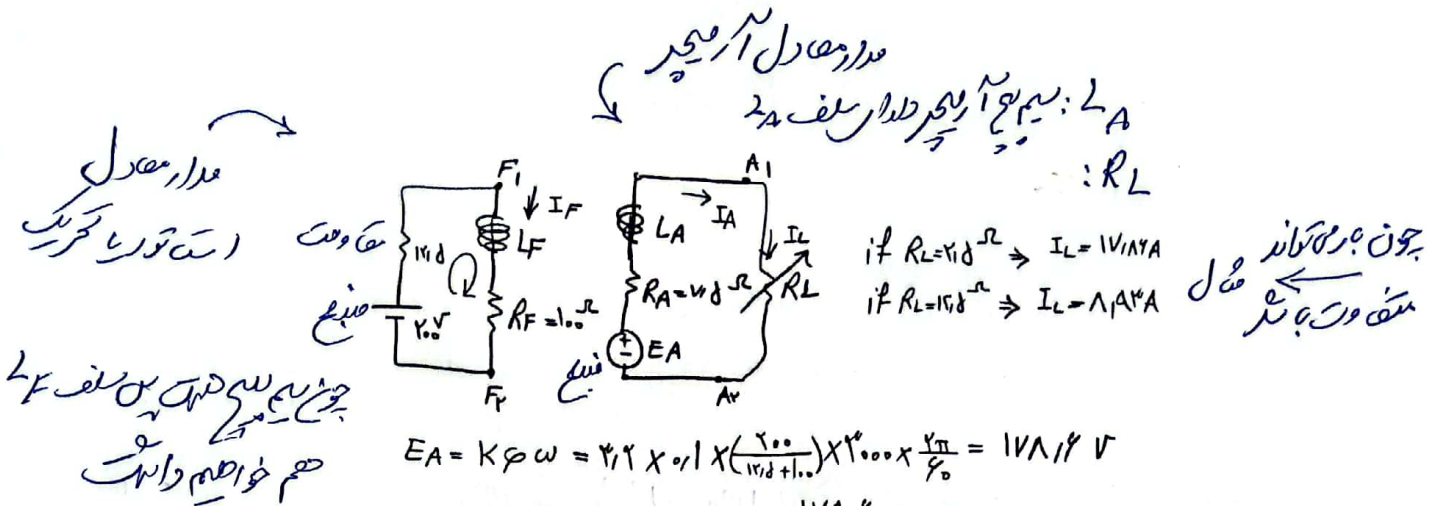 مدار معادل آرمیچر
L_A: سیم پیچ آرمیچر دارای سلف L_A
R_L:
مدار معادل
استاتور یا تحریک
مقاومت
۱۲٫۵
منبع
۲۰۰ V
F₁
I_F
L_F
R_F = ۱۰۰ Ω
F₂
A₁
I_A
L_A
R_A = ۷٫۵ Ω
E_A
منبع
I_L
R_L
A₂
if R_L = ۲٫۵ Ω ⇒ I_L = ۱۷٫۸۶ A
if R_L = ۱۲٫۵ Ω ⇒ I_L = ۸٫۹۳ A
چون بار می تواند
متفاوت باشد
مثال
چون سیم پیچ هست پس سلف L_F
هم خواهیم داشت
E_A = Kφω = ۳٫۲ × ۰٫۱ × (۲۰۰/(۱۲٫۵+۱۰۰)) × ۳۰۰۰ × ۲π/۶۰ = ۱۷۸٫۶ V